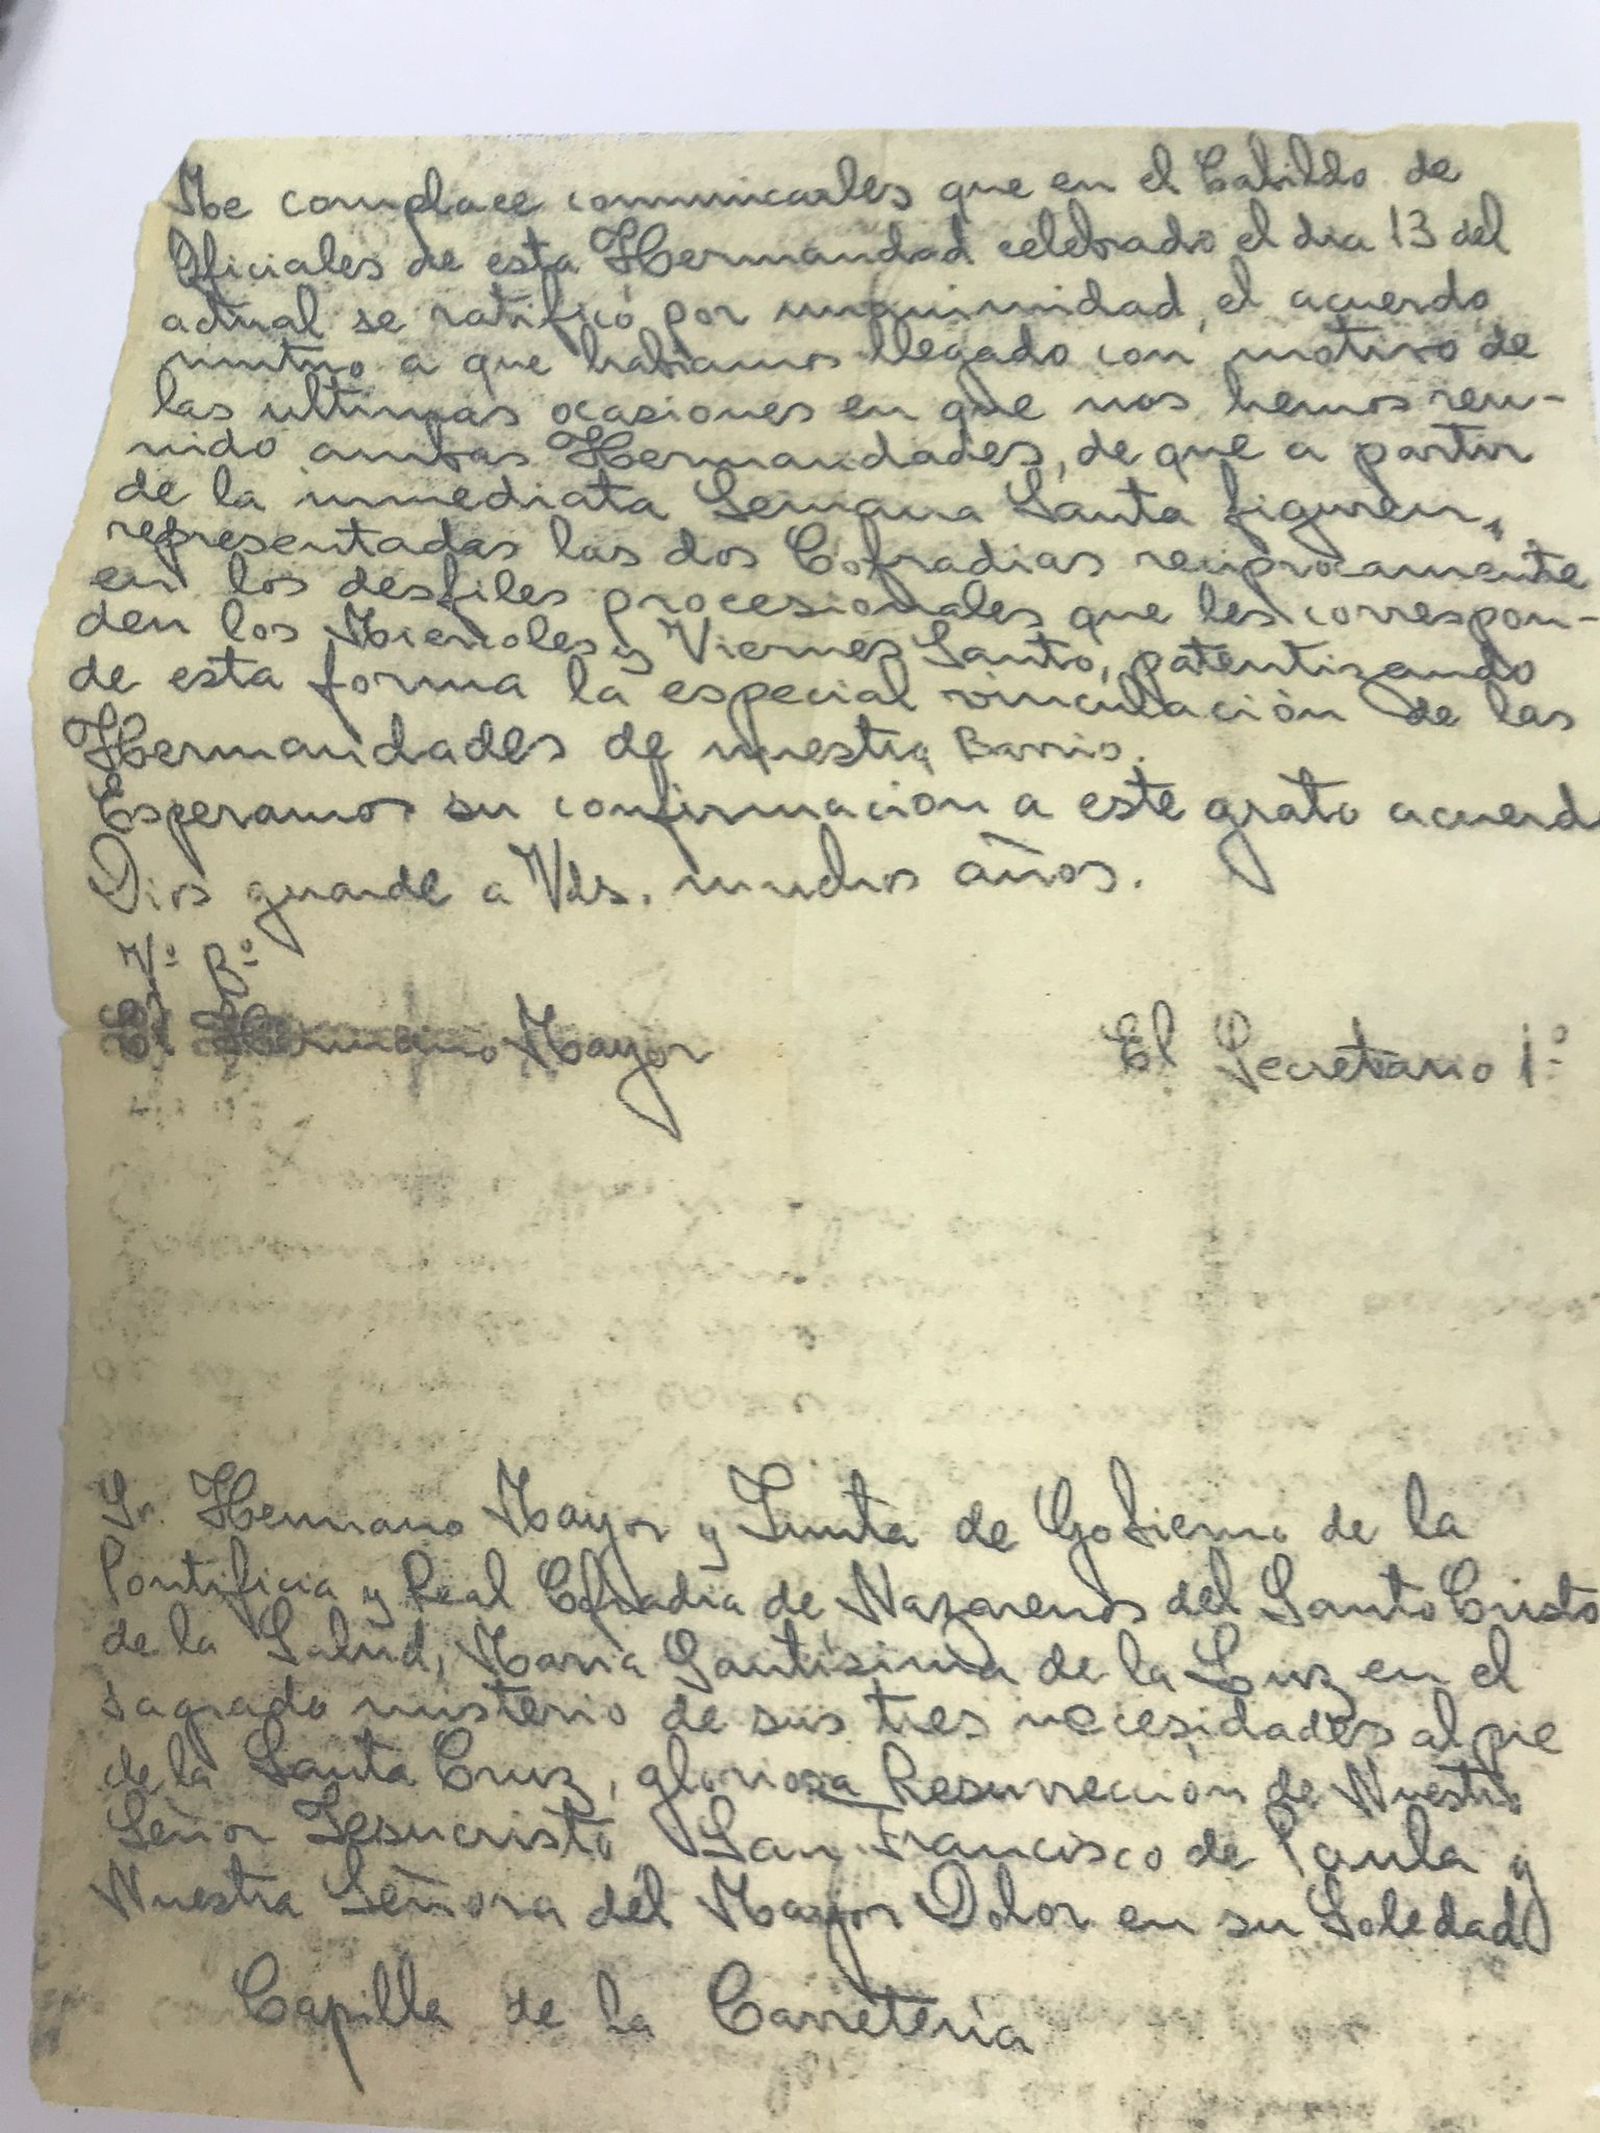 Me complace comunicarles que en el Cabildo de
Oficiales de esta Hermandad celebrado el dia 13 del
actual se ratificó por unanimidad, el acuerdo
mutuo a que habiamos llegado con motivo de
las ultimas ocasiones en que nos hemos reu-
nido ambas Hermandades, de que a partir
de la inmediata Semana Santa figuren
representadas las dos Cofradias reciprocamente
en los desfiles procesionales que les correspon-
den los Miercoles y Viernes Santo, patentizando
de esta forma la especial vinculación de las
Hermandades de nuestro Barrio.
Esperamos su confirmacion a este grato acuerdo
Dios guarde a Vds. muchos años.
Vº Bº
El Hermano Mayor
El Secretario 1º
Sr. Hermano Mayor y Junta de Gobierno de la
Pontificia y Real Cofradia de Nazarenos del Santo Cristo
de la Salud, Maria Santisima de la Luz en el
sagrado misterio de sus tres necesidades al pie
de la Santa Cruz, gloriosa Resurrección de Nuestro
Señor Jesucristo San Francisco de Paula y
Nuestra Señora del Mayor Dolor en su Soledad
Capilla de la Carreteria